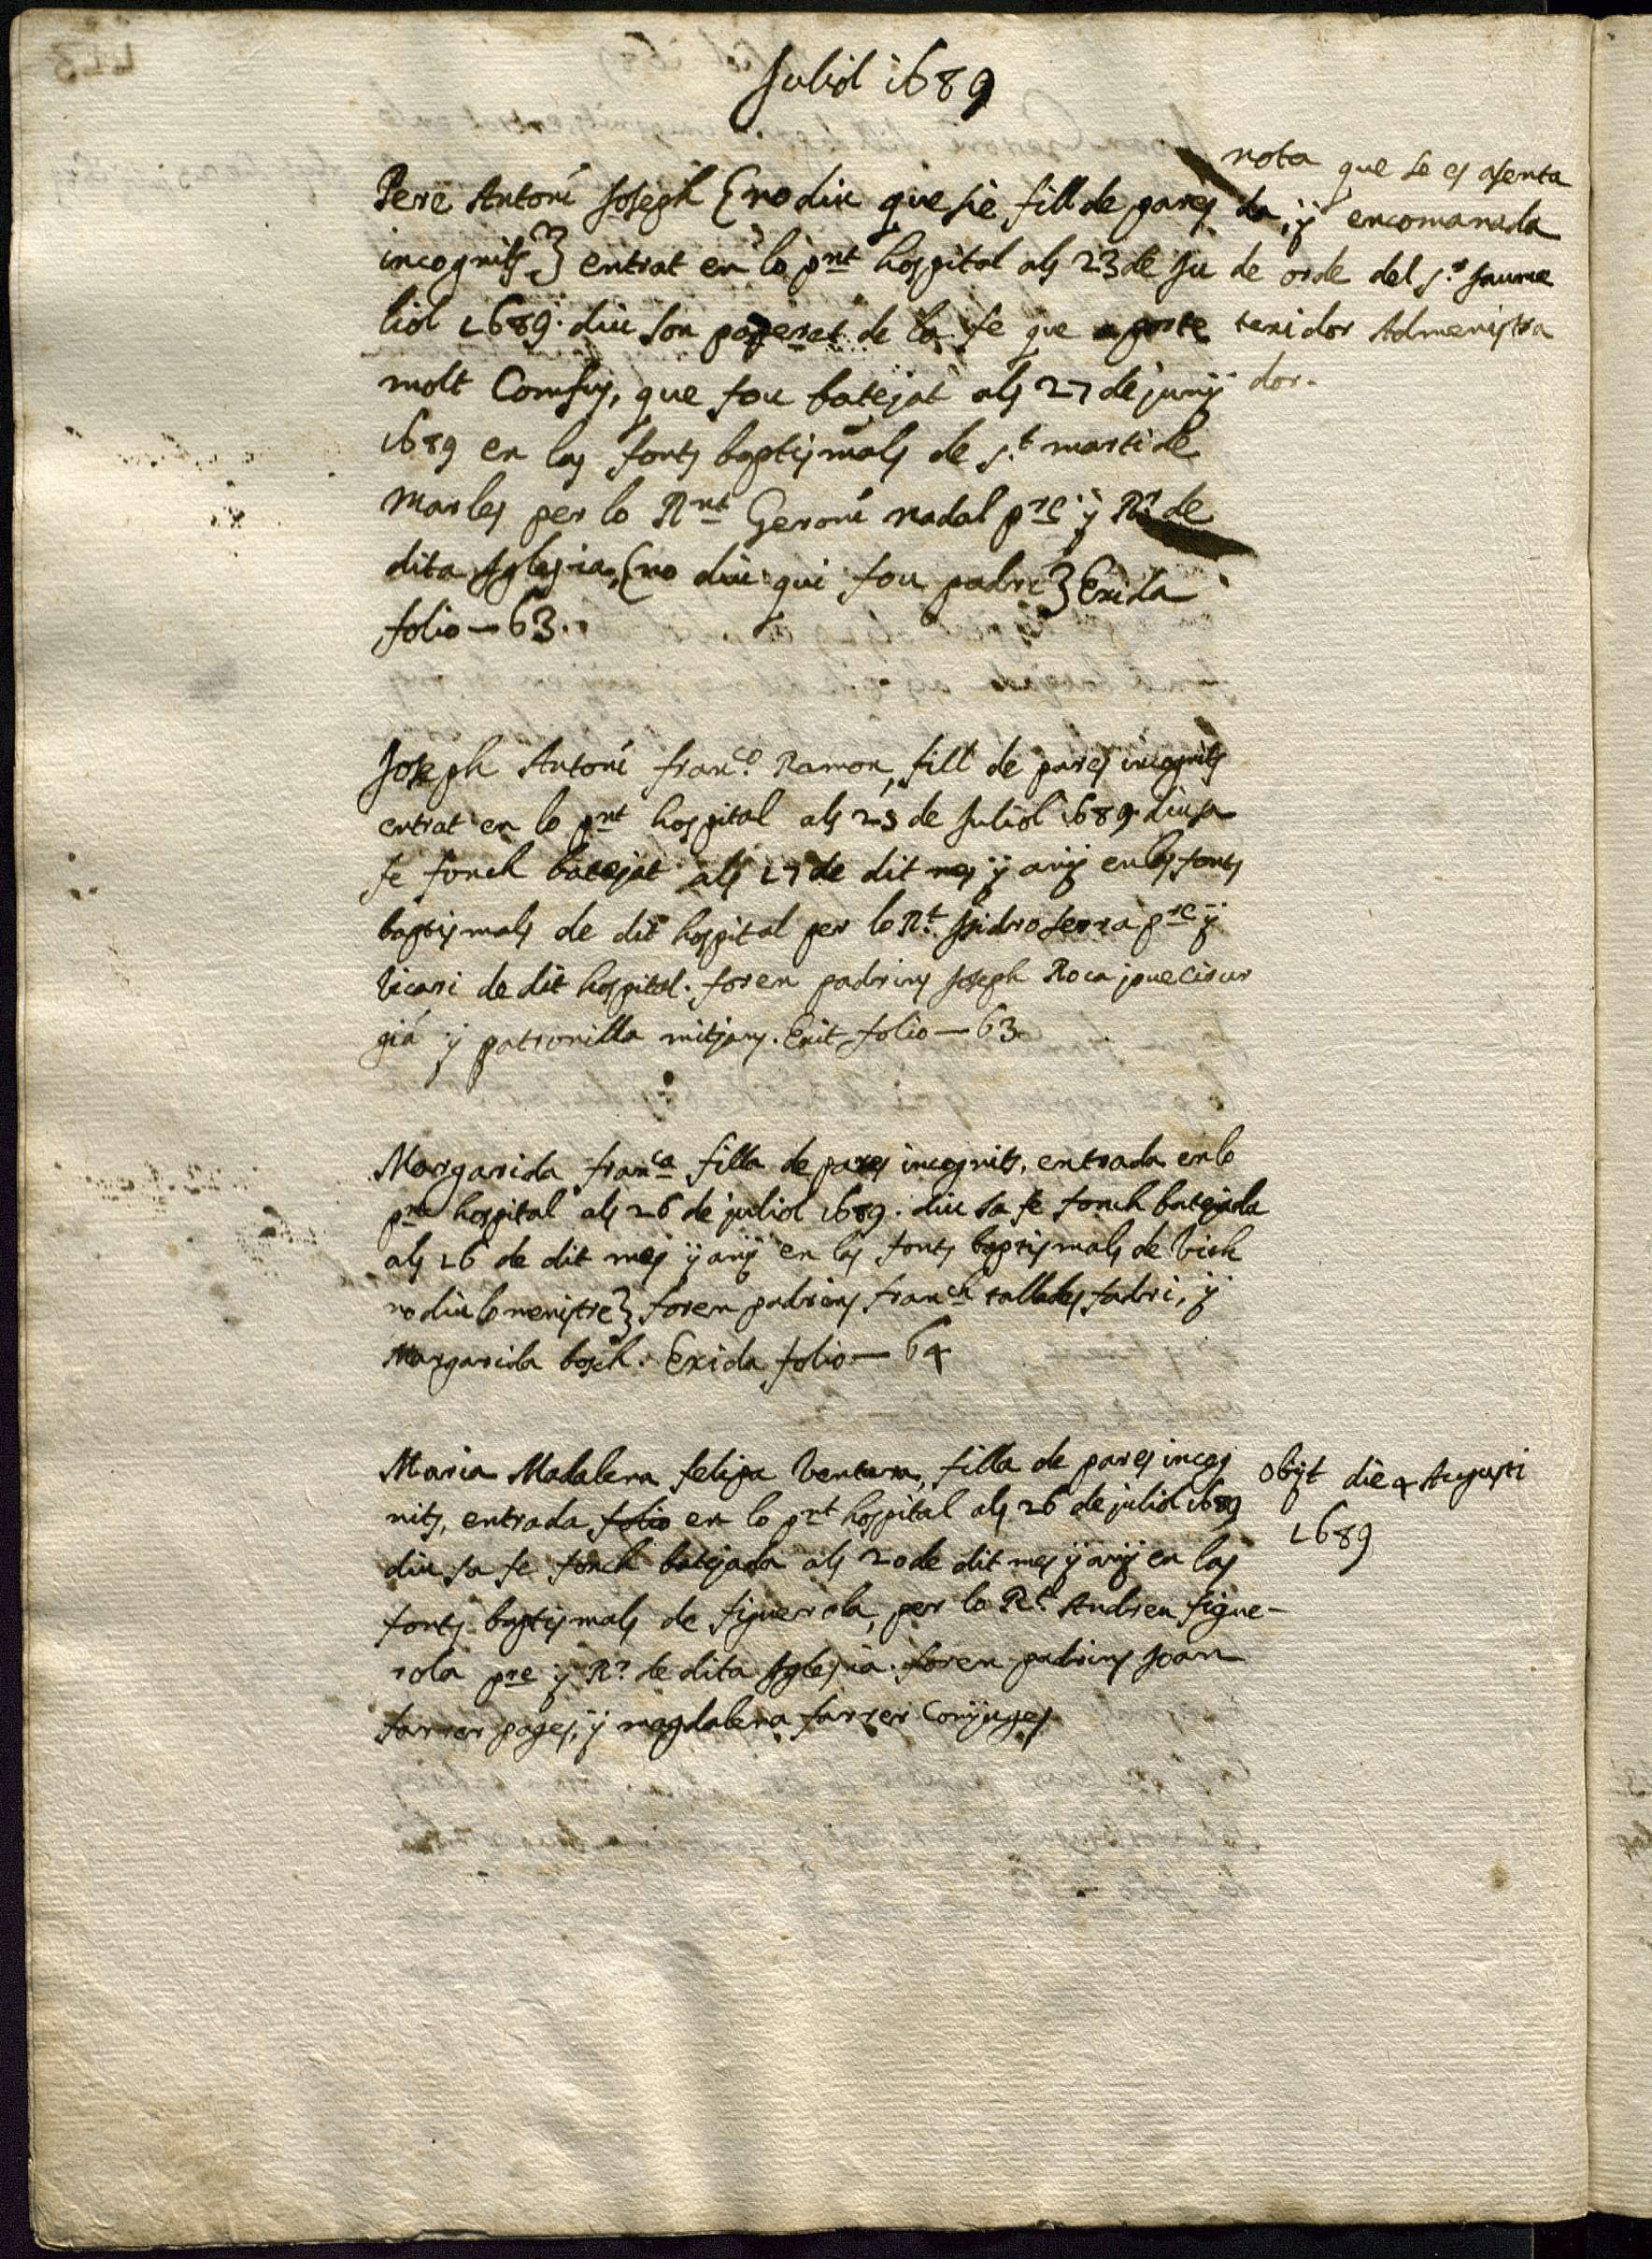 Juliol 1689
Pere Antoni Joseph (no diu que sie fill de pares
incognits) entrat en lo pnt hospital als 23 de Ju
liol 1689. diu son paperet de la fe que aporte
molt Comfus, que fou batejat als 27 de junÿ
1689 en las fonts baptismals de s.t marti de
Marles per lo Rnt Geroni nadal pre ÿ Rr de
dita Iglesia, (no diu qui fou padri) Exida
folio — 63.
nota que se es asenta
da, ÿ encomanada
de orde del s.r Jaume
texidor Administra
dor.
Joseph Antoni fran.co Ramon, fill de pares incognits
entrat en lo pnt hospital als 23 de Juliol 1689. diu sa
fe fonch batejat als 17 de dit mes ÿ anÿ en las fonts
baptismals de dit hospital per lo R.t Isidro serra pre ÿ
Vicari de dit hospital. foren padrins Joseph Roca jove Cirur
già ÿ patronilla mitjans. Exit folio — 63
Margarida franca filla de pares incognits, entrada en lo
pnt hospital als 26 de juliol 1689. diu sa fe fonch batejada
als 16 de dit mes ÿ anÿ en las fonts baptismals de Vich
no diu lo menistre) foren padrins franch tallades fadri, ÿ
Margarida bosch. Exida folio — 64
Maria Madalena felipa Ventura, filla de pares incog
nits, entrada folio en lo pnt hospital als 26 de juliol 1689
diu sa fe fonch batejada als 20 de dit mes ÿ anÿ en las
fonts baptismals de figuerola, per lo R.t Andreu figue-
rola pre ÿ R.r de dita Iglesia. foren padrins Joan
farrer pages, ÿ magdalena farrer Conÿuges
Obÿt die 4 Augusti
1689